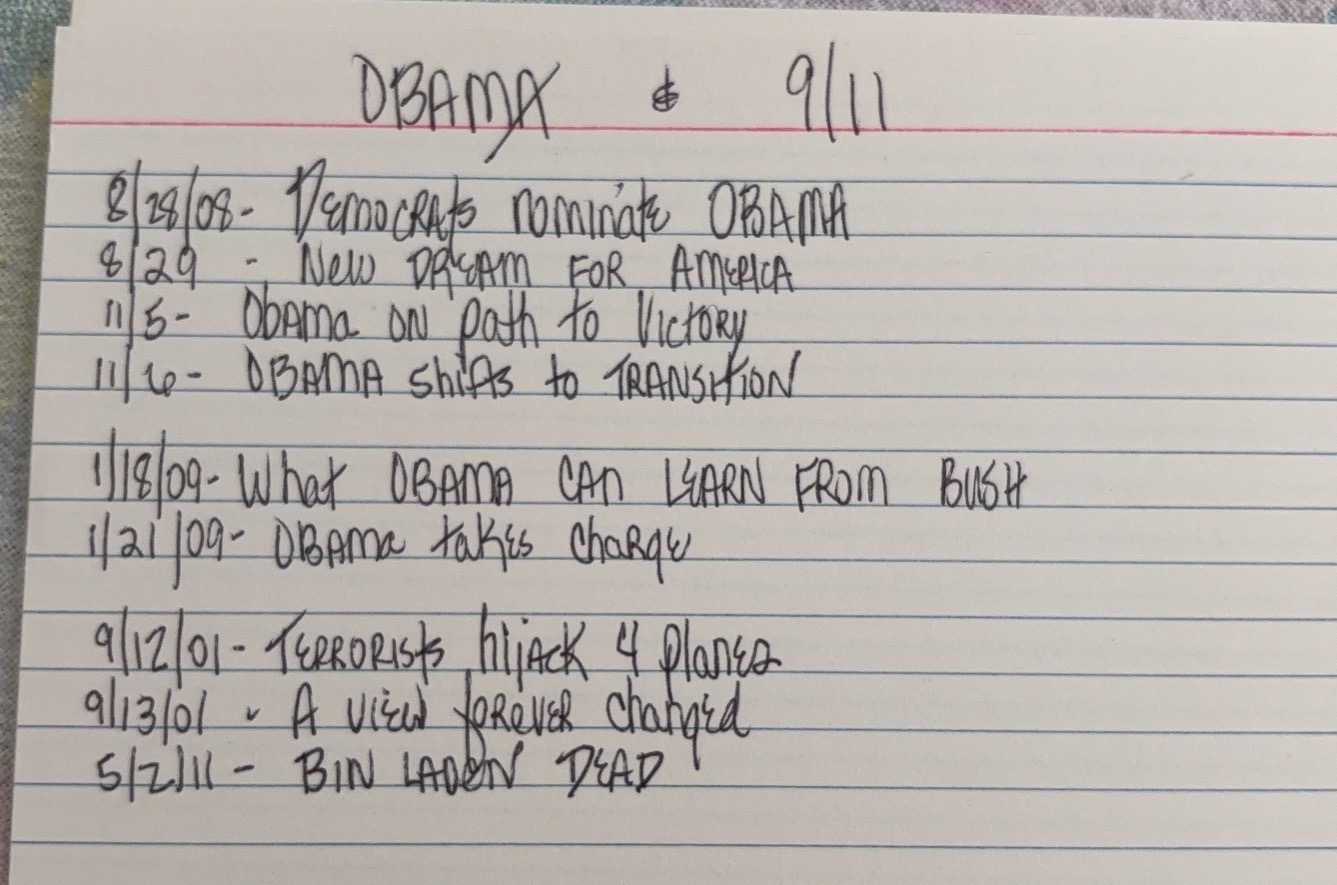 OBAMA & 9/11
8/28/08- Democrats nominate OBAMA
8/29 - New DREAM FOR AMERICA
11/5- Obama on path to Victory
11/6- OBAMA shifts to TRANSITION
1/18/09- What OBAMA CAN LEARN FROM BUSH
1/21/09- OBAMA takes charge
9/12/01- TERRORISTS hijack 4 planes
9/13/01 - A view forever changed
5/2/11 - BIN LADEN DEAD